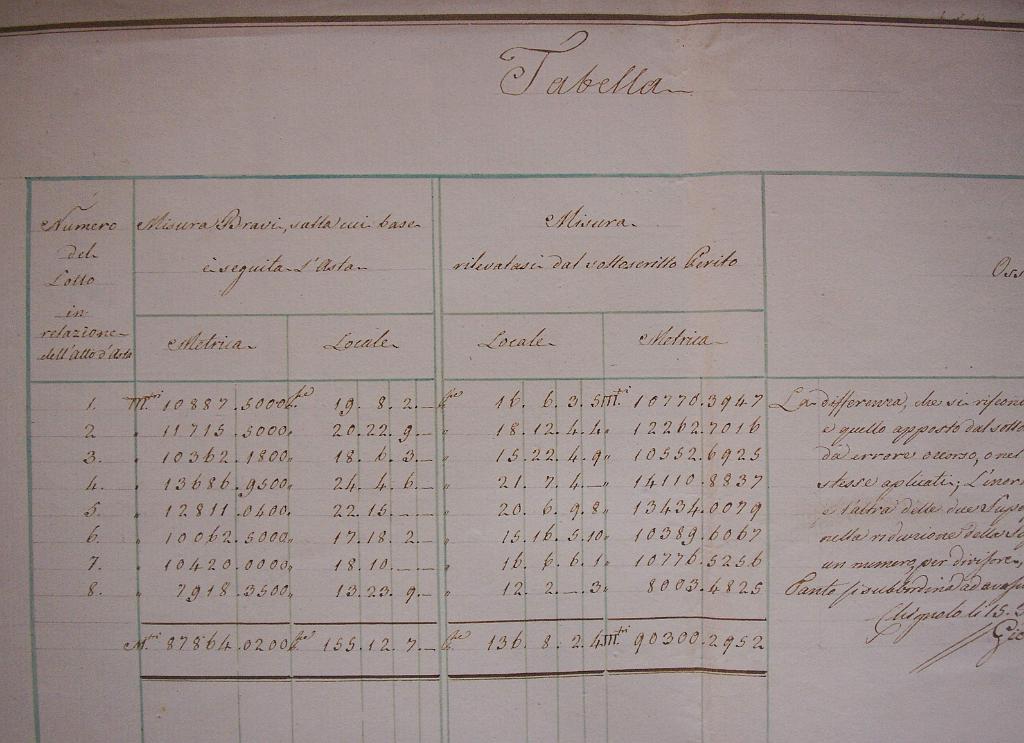 Tabella
Numero
del
Lotto
in
relazione
dell'Atto d'Asta
Misura Bravi, sulla cui base
è seguita l'Asta
Misura
rilevatasi dal sottoscritto Perito
Oss
Metrica Locale Locale Metrica
1. M.tri 10887.5000 19. 8. 2. — 16. 6. 3. 5 M.tri 10770.3947
2 " 11715.5000 " 20. 22. 9. — " 18. 12. 4. 4 " 12262.7016
3. " 10362.1800 " 18. 6. 3. — " 15. 22. 4. 9 " 10552.6925
4. " 13686.9500 " 24. 4. 6. — " 21. 7. 4. — " 14110.8837
5. " 12811.0400 " 22. 15. — — " 20. 6. 9. 8 " 13434.0079
6. " 10062.5000 " 17. 18. 2. — " 15. 16. 5. 10 " 10389.6067
7. " 10420.0000 " 18. 10. — — " 16. 6. 6. 1 " 10776.5256
8. " 7918.3500 " 13. 23. 9. — " 12. 2. — 3 " 8003.4825
M.tri 87864.0200 155. 12. 7. — 136. 8. 2. 4 M.tri 90300.2952
La differenza, che si riscon
e quello apposto dal sotto
da errore occorso, o nel
stesse aplicati; L'iner
e l'altra delle due Supe
nella riduzione della S
un numero per divisore,
Tanto si subordina ad
Chignolo li 15.
Gio